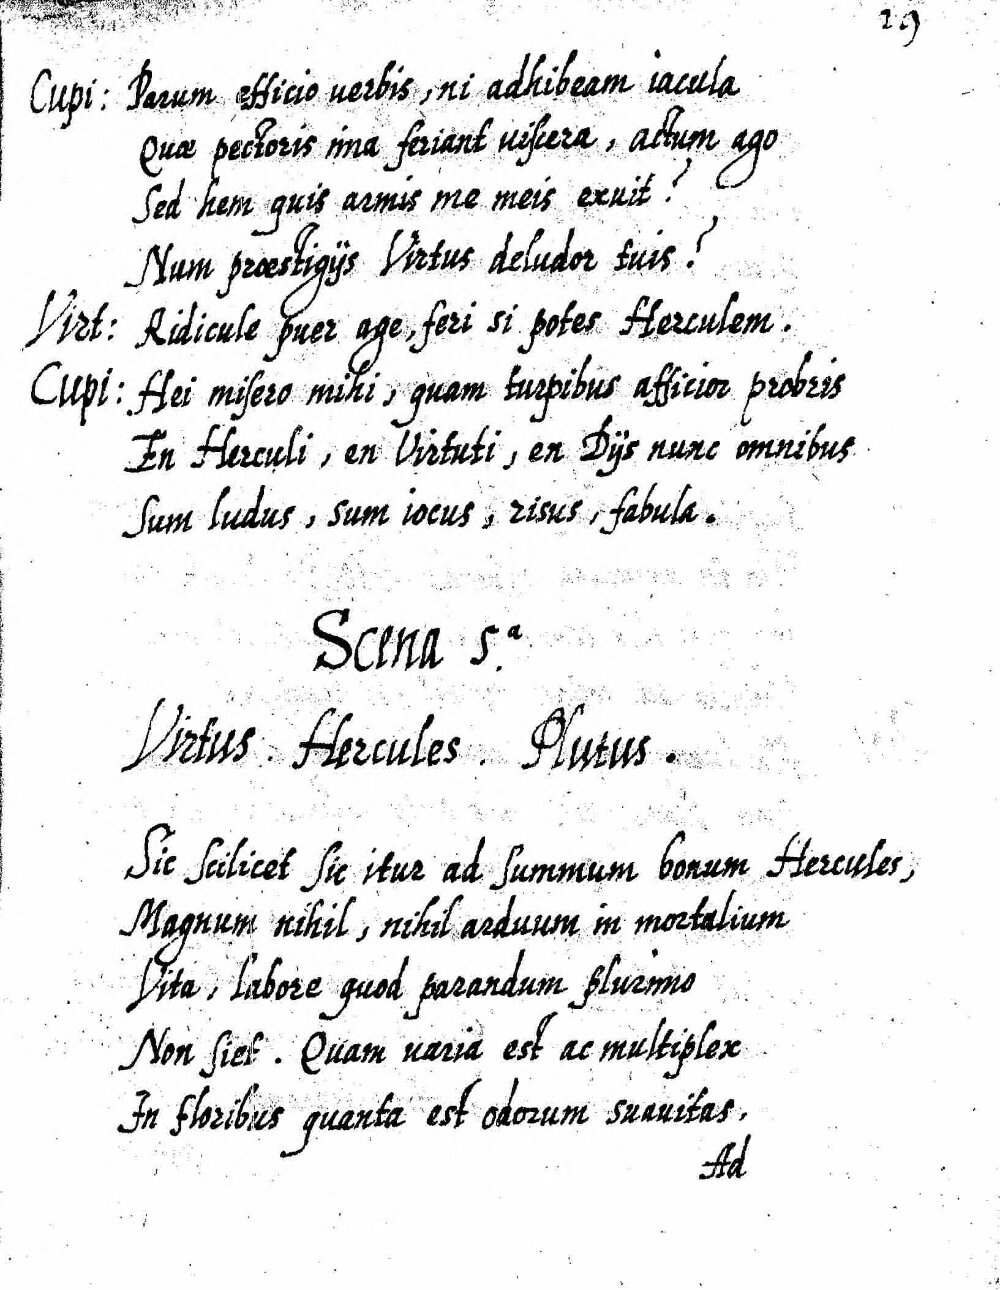 19
Cupi: Parum efficio uerbis, ni adhibeam iacula
Quæ pectoris ima feriant uiscera, actum ago
Sed hem quis armis me meis exuit?
Num præstigijs Virtus deludor tuis?
Virt: Ridicule puer age, feri si potes Herculem.
Cupi: Hei misero mihi, quam turpibus afficior probris
En Herculi, en Virtuti, en Dijs nunc omnibus
Sum ludus, sum iocus, risus, fabula.
Scena 5.ª
Virtus. Hercules. Plutus.
Sic scilicet sic itur ad summum bonum Hercules,
Magnum nihil, nihil arduum in mortalium
Vita, labore quod parandum plurimo
Non siet. Quam uaria est ac multiplex
In floribus quanta est odorum suauitas,
Ad